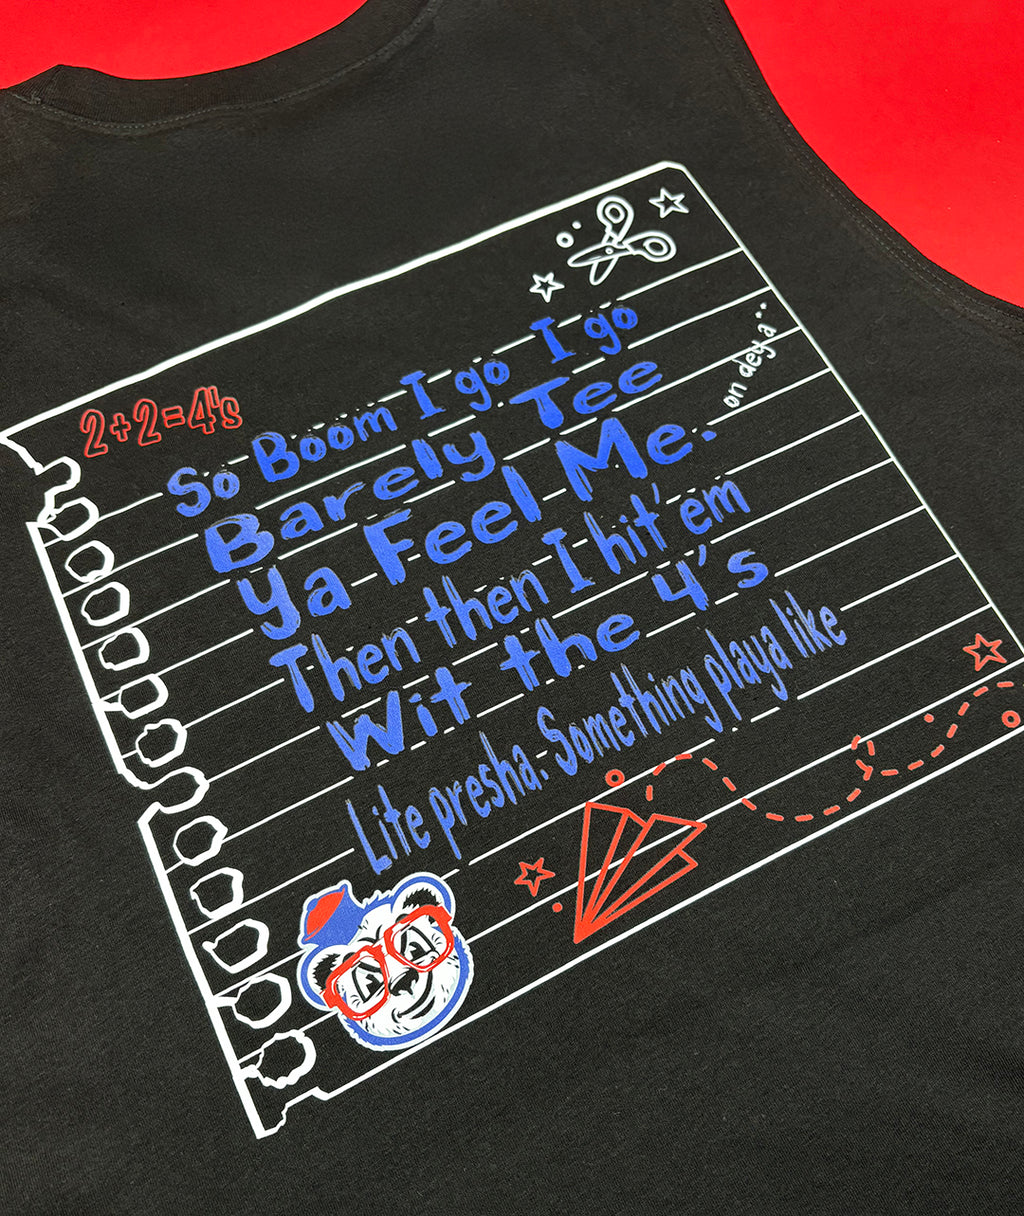 2+2=4's
So Boom I go I go
Barely Tee
Ya Feel Me.
on dey a..
Then then I hit'em
Wit the 4's
Lite presha. Something playa like